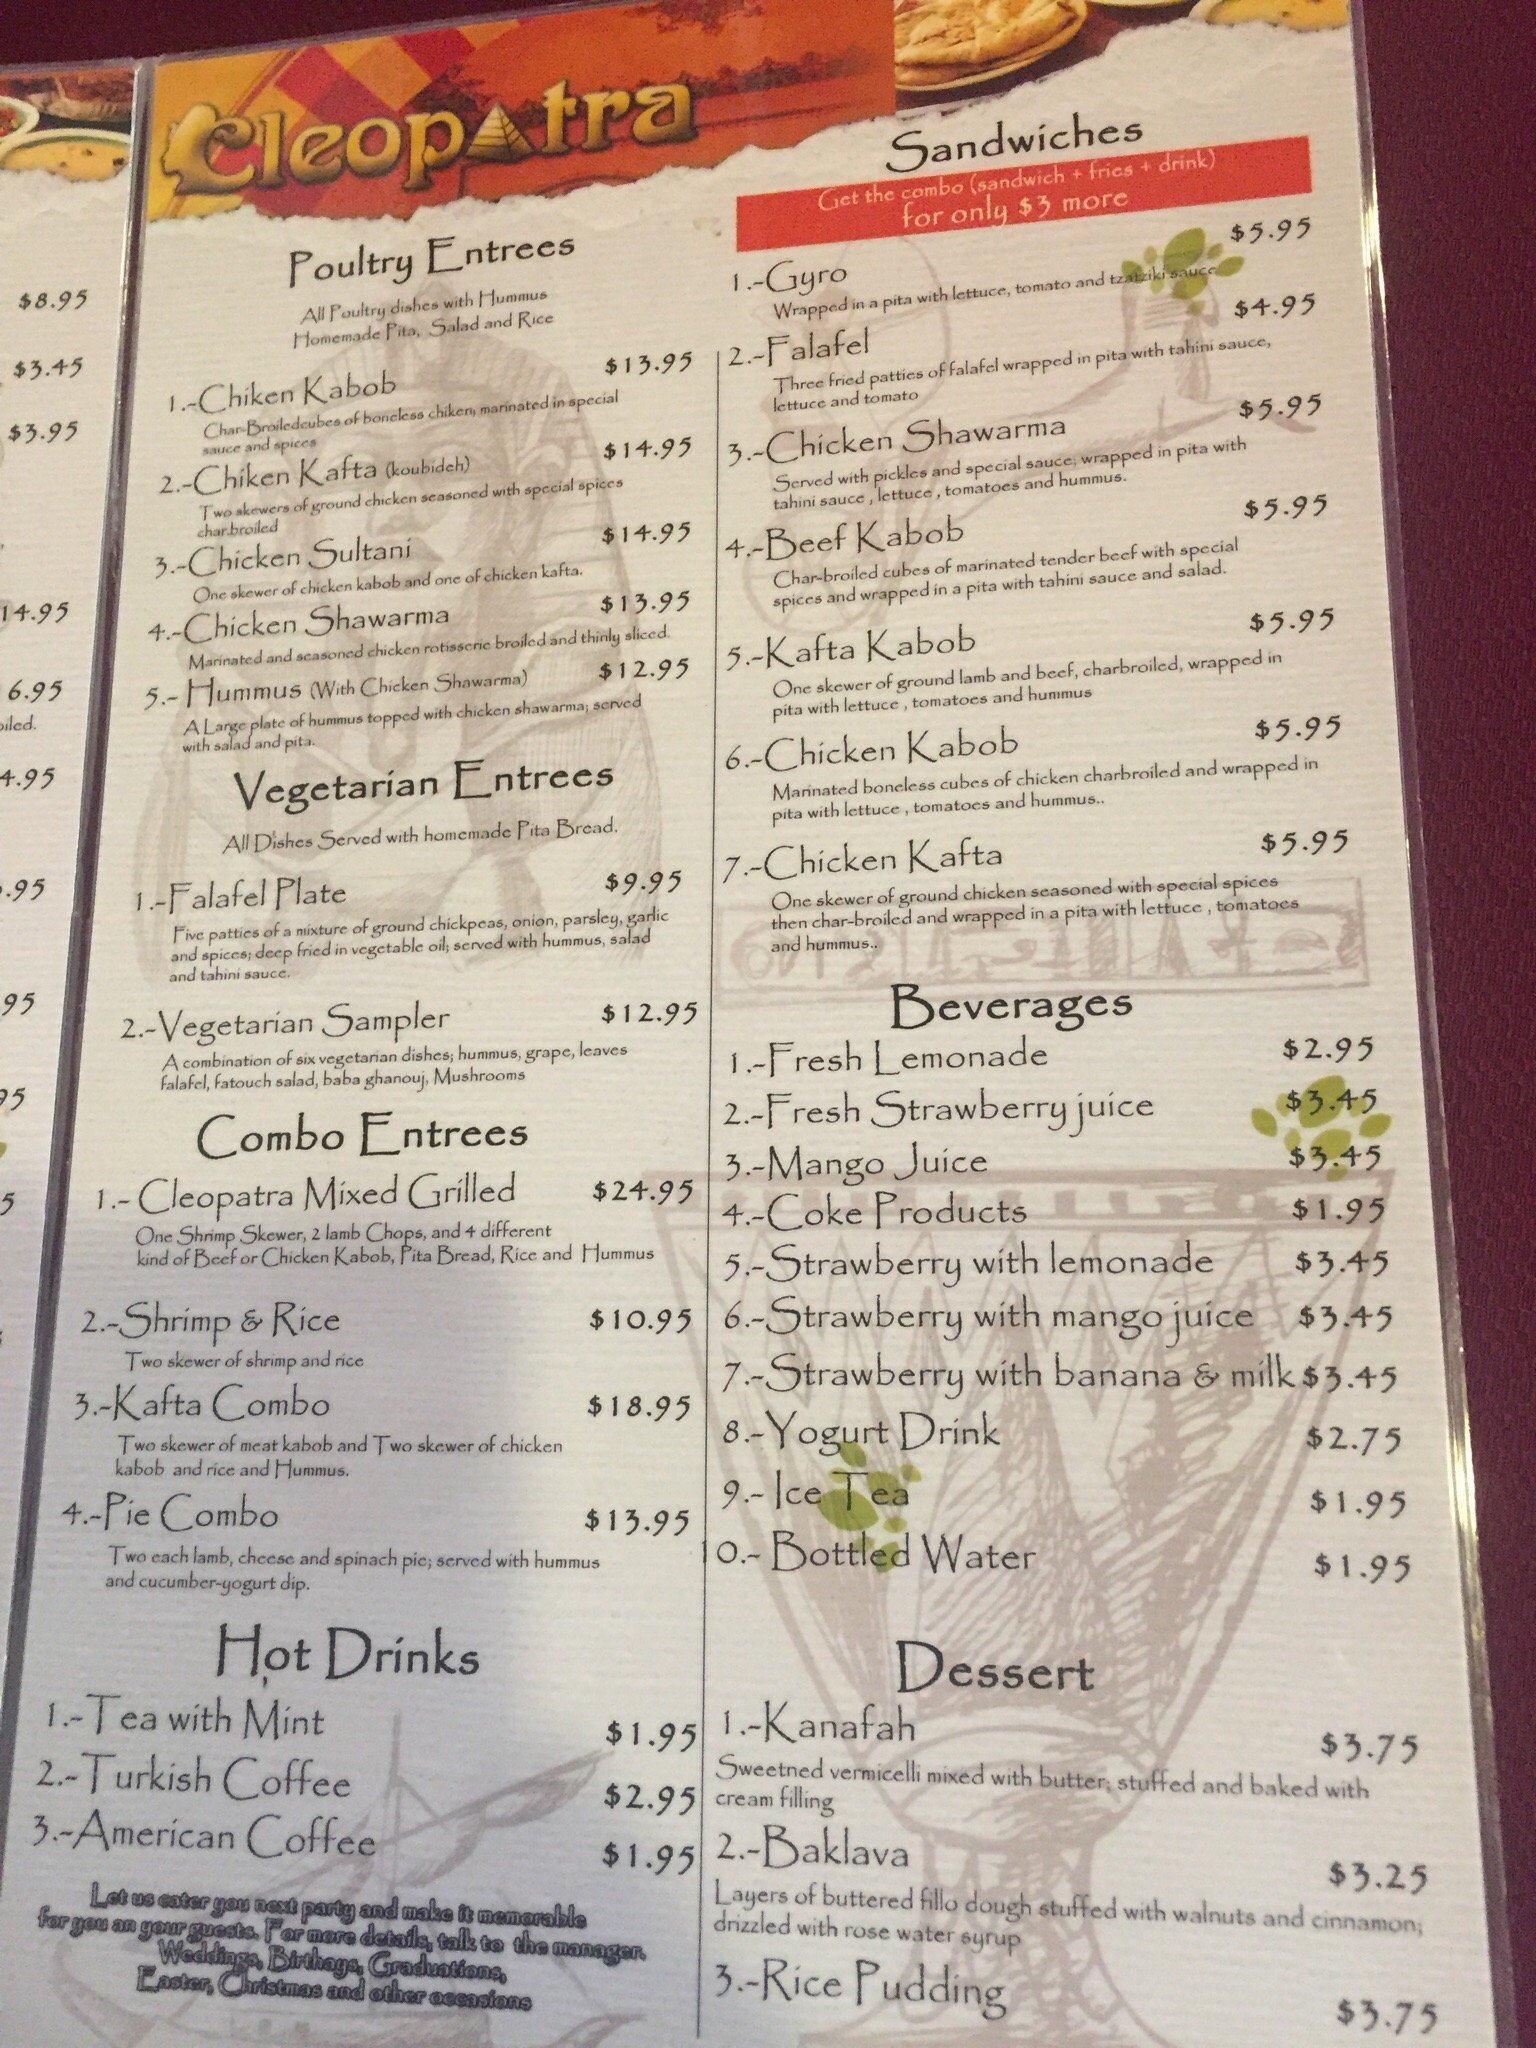 $8.95
$3.45
$3.95
14.95
6.95
oiled.
4.95
.95
95
95
5
Cleopatra
Poultry Entrees
All Poultry dishes with Hummus
Homemade Pita, Salad and Rice
1.-Chiken Kabob $13.95
Char-Broiledcubes of boneless chiken; marinated in special
sauce and spices
2.-Chiken Kafta (koubideh) $14.95
Two skewers of ground chicken seasoned with special spices
char.broiled
3.-Chicken Sultani $14.95
One skewer of chicken kabob and one of chicken kafta.
4.-Chicken Shawarma $13.95
Marinated and seasoned chicken rotisserie broiled and thinly sliced.
5.- Hummus (With Chicken Shawarma) $12.95
A Large plate of hummus topped with chicken shawarma; served
with salad and pita.
Vegetarian Entrees
All Dishes Served with homemade Pita Bread.
1.-Falafel Plate $9.95
Five patties of a mixture of ground chickpeas, onion, parsley, garlic
and spices; deep fried in vegetable oil; served with hummus, salad
and tahini sauce.
2.-Vegetarian Sampler $12.95
A combination of six vegetarian dishes; hummus, grape, leaves
falafel, fatouch salad, baba ghanouj, Mushrooms
Combo Entrees
1.- Cleopatra Mixed Grilled $24.95
One Shrimp Skewer, 2 lamb Chops, and 4 different
kind of Beef or Chicken Kabob, Pita Bread, Rice and Hummus
2.-Shrimp & Rice $10.95
Two skewer of shrimp and rice
3.-Kafta Combo $18.95
Two skewer of meat kabob and Two skewer of chicken
kabob and rice and Hummus.
4.-Pie Combo $13.95
Two each lamb, cheese and spinach pie; served with hummus
and cucumber-yogurt dip.
Hot Drinks
1.-Tea with Mint $1.95
2.-Turkish Coffee $2.95
3.-American Coffee $1.95
Let us cater you next party and make it memorable
for you an your guests. For more details, talk to the manager.
Weddings, Birthays, Graduations,
Easter, Christmas and other occasions
Sandwiches
Get the combo (sandwich + fries + drink)
for only $3 more
1.-Gyro $5.95
Wrapped in a pita with lettuce, tomato and tzatziki sauce
2.-Falafel $4.95
Three fried patties of falafel wrapped in pita with tahini sauce,
lettuce and tomato
3.-Chicken Shawarma $5.95
Served with pickles and special sauce; wrapped in pita with
tahini sauce , lettuce , tomatoes and hummus.
4.-Beef Kabob $5.95
Char-broiled cubes of marinated tender beef with special
spices and wrapped in a pita with tahini sauce and salad.
5.-Kafta Kabob $5.95
One skewer of ground lamb and beef, charbroiled, wrapped in
pita with lettuce , tomatoes and hummus
6.-Chicken Kabob $5.95
Marinated boneless cubes of chicken charbroiled and wrapped in
pita with lettuce , tomatoes and hummus..
7.-Chicken Kafta $5.95
One skewer of ground chicken seasoned with special spices
then char-broiled and wrapped in a pita with lettuce , tomatoes
and hummus..
Beverages
1.-Fresh Lemonade $2.95
2.-Fresh Strawberry juice $3.45
3.-Mango Juice $3.45
4.-Coke Products $1.95
5.-Strawberry with lemonade $3.45
6.-Strawberry with mango juice $3.45
7.-Strawberry with banana & milk $3.45
8.-Yogurt Drink $2.75
9.- Ice Tea $1.95
10.- Bottled Water $1.95
Dessert
1.-Kanafah $3.75
Sweetned vermicelli mixed with butter; stuffed and baked with
cream filling
2.-Baklava $3.25
Layers of buttered fillo dough stuffed with walnuts and cinnamon;
drizzled with rose water syrup
3.-Rice Pudding $3.75